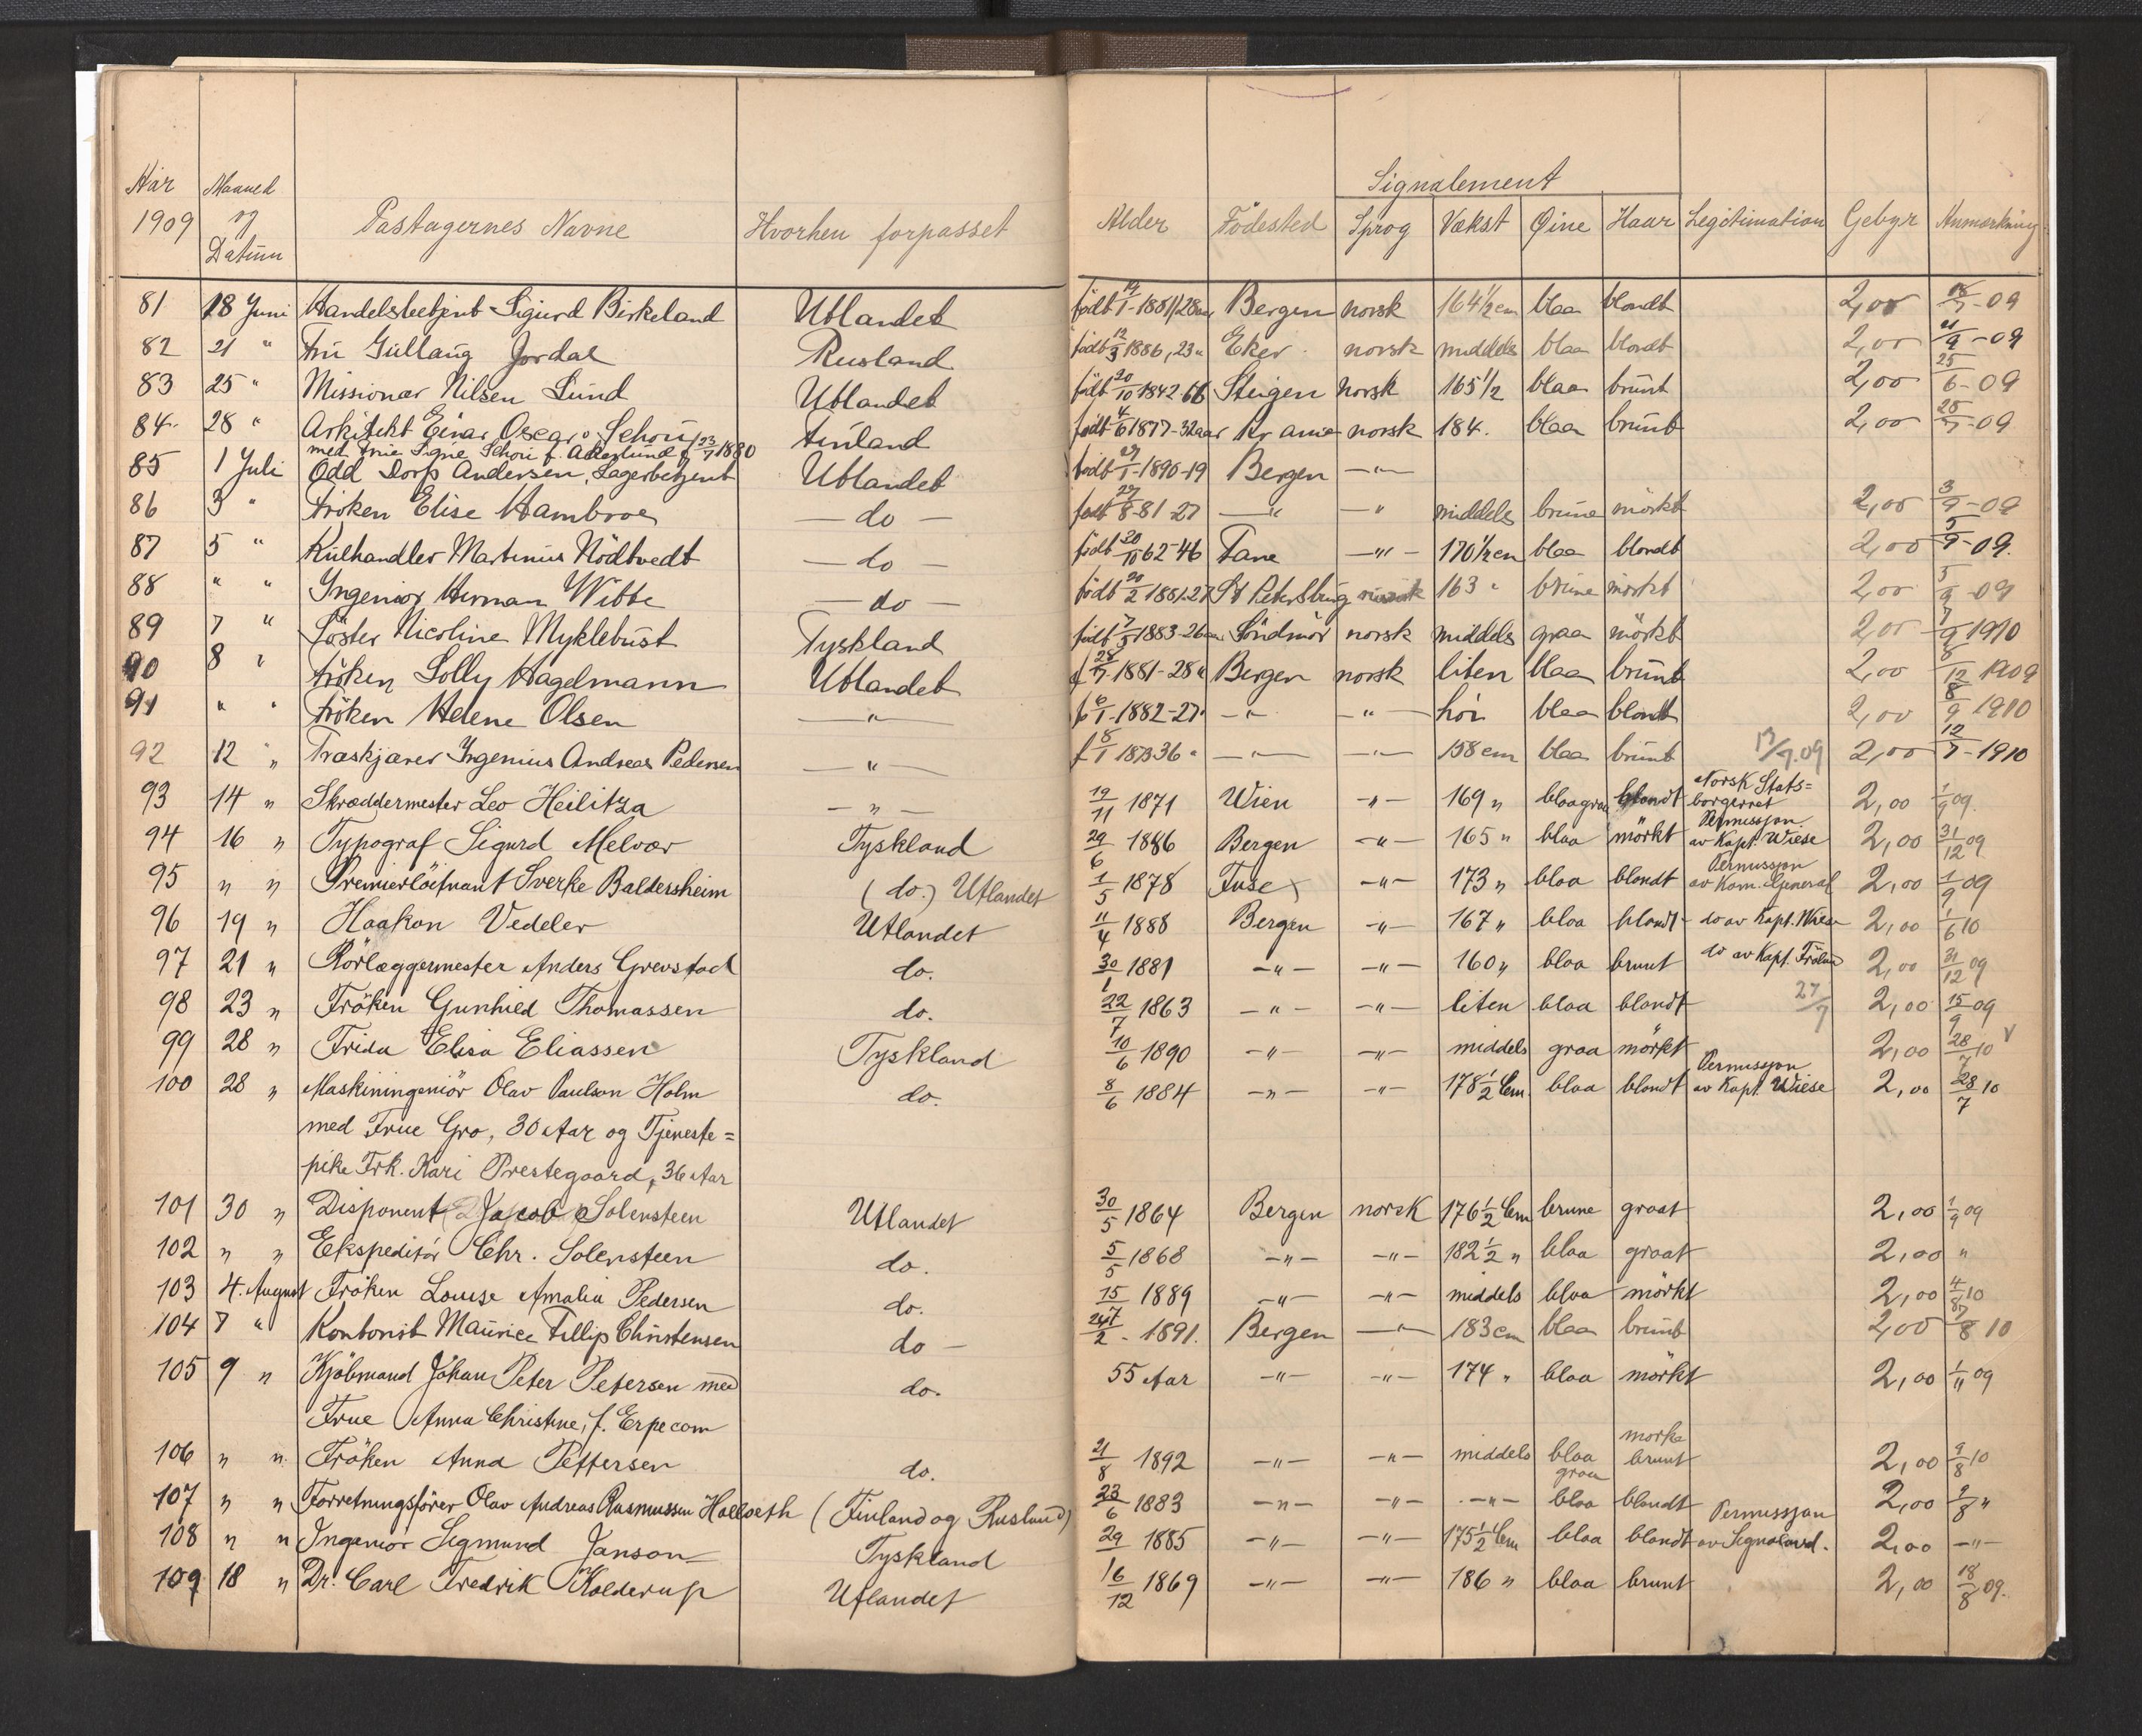 Aar Maaned Signalement
1909 og Pastagernes Navne Hvorhen forpasset Alder Födested Sprog Vækst Øine Haar Legitimation Gebyr Anmerkning
Datum
81 18 Juni Handelsbetjent Sigurd Birkeland Utlandet födt 1881 28 Bergen norsk 164 1/2 cm blaa blondt 2,00 -09
82 21 " Fru Gullaug Jordal Rusland födt 12/3 1886, 23 " Eker norsk middels blaa blondt 2,00 21/9 -09
83 25 " Missionær Nilsen Lund Utlandet födt 20/10 1842 66 Steigen norsk 165 1/2 blaa brunt 2,00 25/6 -09
84 28 " Arkitekt Einar Oscar Schou Finland födt 4/6 1877-32 aar Kr ania norsk 184. blaa brunt 2,00 -09
med Frue Signe Schou f. Akerlund f 23/7 1880
85 1 Juli Odd Dorp Andersen, Lagerbetjent Utlandet födt 29/1-1890-19 Bergen —"—
86 3 " Fröken Elise Hambroe — do — födt 29/8-81-27 —"— —" middels brune mörkt 2,00 3/9 -09
87 5 " Kulhandler Martinus Nödtvedt — do — födt 20/10 62-46 Fane —"— 170 1/2 cm blaa blondt 2,00 5/9 -09.
88 " " Ingeniör Herman Wibbe — do — födt 20/2 1881.27 St Petersburg 163 " brune mörkt 2,00 5/9 -09
89 7 " Söster Nicoline Myklebust Tyskland födt 7/3 1883-26 aar Söndmör norsk middels graa mörkt 2,00 7/9 1910
90 8 " Fröken Lolly Hagelmann Utlandet f 28/7. 1881-28 " Bergen norsk liten blaa brunt 2,00 8/12 1909
91 " " Fröken Helene Olsen —"— f 6/1-1882-27 " —"— —"— höi blaa blondt 2,00 8/9 1910
92 12 " Træskjærer Ingenius Andreas Pedersen —"— f 8/1 1873 36 " —"— —"— 158 cm blaa brunt 13/7.09 2,00 12/7 -1910
93 14 " Skræddermester Leo Heilitza —"— 19/11 1871 Wien —"— 169 " blaagraa blondt Norsk Stats=
borgerret 2,00 1/9 09.
94 16 " Typograf Sigurd Melvær Tyskland 29/6 1886 Bergen —"— 165 " blaa mörkt Permissjon
av Kapt. Wiese 2,00 31/12 09
95 " " Premierlöitnant Sverke Baldersheim (do.) Utlandet 1/5 1878 Fuse —"— 173 " blaa blondt Permissjon
av Kom. General 2,00 1/9 09
96 19 " Haakon Vedeler Utlandet 11/4 1888 Bergen —"— 167 " blaa blondt do av Kapt. Wiese 2,00 1/6 10
97 21 " Rörlæggermester Anders Grevstad do. 30/1 1881 —"— —"— 160 " blaa brunt do av Kapt. 2,00 31/12 09
98 23 " Fröken Gunhild Thomassen do. 22/7 1863 —"— —"— liten blaa blondt 27/7 2,00 15/9 09
99 28 " Frida Elisa Eliassen Tyskland 10/6 1890 —"— —"— middels graa mörkt 2,00 28/7 10 v
100 28 " Maskiningeniör Olav Paulson Holm do. 8/6 1884 —"— —"— 178 1/2 Cem. blaa blondt Permissjon
av Kapt. Wiese 2,00 28/7 10
med Frue Gro, 30 Aar og Tjeneste=
pike Frk. Kari Prestegaard, 36 Aar
101 30 " Disponent Jacob Solensteen Utlandet 30/5 1864 Bergen norsk 176 1/2 Cem brune graat 2,00 1/9 09
102 " " Ekspeditör Chr. Solensteen do. 5/5 1868 —"— —"— 182 1/2 " blaa graat 2,00 "
103 4. August Fröken Louise Amalia Pedersen do. 15 1889 —"— —"— middels blaa mörkt 2,00 4/8 10
104 7 " Kontorist Maurice Fillip Christensen do — 1891. Bergen —"— 183 cm blaa brunt 2,00 7/8 10
105 9 " Kjöbmand Johan Peter Petersen med do. 55 Aar —"— —"— 174 " blaa mörkt 2,00 1/11 09
Frue Anna Christine, f. Erpecom
106 " " Fröken Anna Pettersen do. 21/8 1892 —"— —"— middels blaa graa mörke brunt 2,00 9/8 10
107 " " Forretningsförer Olav Andreas Rasmussen (Finland og Rusland) 23/6 1883 —"— —"— —"— blaa blondt 2,00 9/8 "
108 " " Ingeniör Sigmund Janson Tyskland 29 1885 —"— —"— 175 1/2 Cem blaa blondt Permissjon
av 2,00 —"—
109 18 " Dr. Carl Fredrik Kolderup Utlandet 16/12 1869 —"— —"— 186 " blaa brunt 2,00 18/8 09.